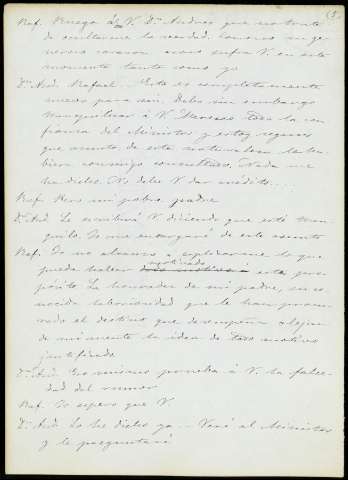 (5)
Raf. Ruego á V. Dn. Andres que no trate
de ocultarme la verdad. Conozco su ge-
neroso corazon acaso sufra V. en este
momento tanto como yo
Dn. And. Rafael ... Esto es completamente
nuevo para mi. Debo sin embargo
tranquilizar á V. Merezco toda la con-
fianza del Ministro y estoy seguro
que asunto de esta naturaleza lo ha-
biera conmigo consultado. Nada me
ha dicho. No debe V. dar crédito....
Raf. Pero mi pobre padre
Dn. And. Le escribirá V. diciendo que esté tran-
quilo. Yo me encargaré de este asunto
Raf. Yo no alcanzo a explicarme lo que
pueda haber motivado este pro-
pósito. La honradez de mi padre, su co-
nocida laboriosidad que le han procu-
rado el destino que desempeña alejan
de mi mente la idea de todo motivo
justificado
Dn. And. Eso mismo prueba á V. la false-
dad del rumor
Raf. Yo espero que V.
Dn. And. Lo he dicho ya ... Veré al Ministro
y le preguntaré